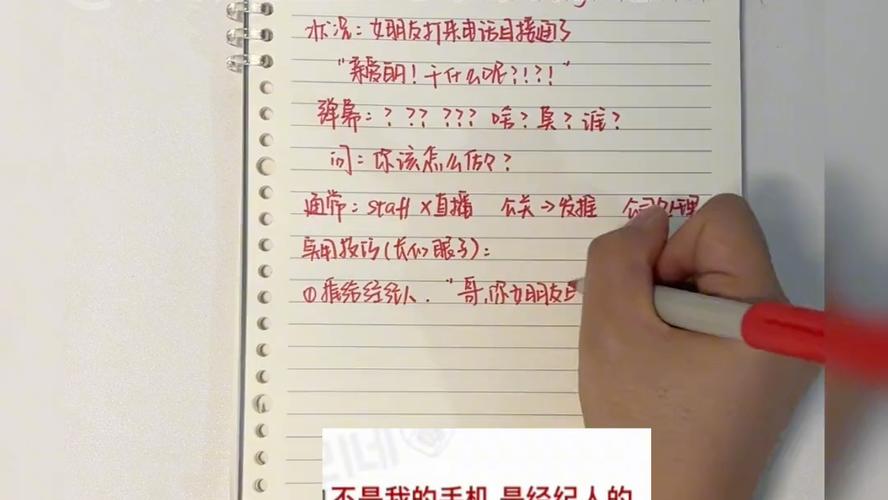 状况：女朋友打来电话且接通了
"亲爱的！干什么呢？！？！"
弹幕：？ ？？ ？？？ 啥？臭？谁？
问：你该怎么做？
通常：staff×直播 公关→发推 公司处理
实用技巧(长个心眼子)：
①推给经纪人．"哥,你女朋友
不是我的手机 是经纪人的